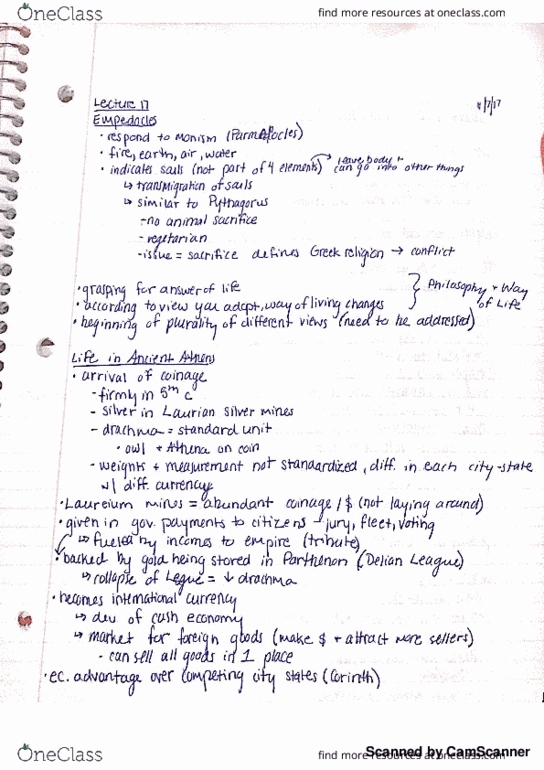 OneClass
find more resources at oneclass.com
Lecture 17
4/7/17
Empedocles
• respond to Monism (Parmenocles)
• fire, earth, air, water
• indicates sails (not part of 4 elements) → leave body + can go into other things
↳ transmigration of sails
↳ similar to Pythagorus
- no animal sacrifice
- vegetarian
- issue = sacrifice defines Greek religion → conflict
• grasping for answer of life
• according to view you adopt, way of living changes } Philosophy + Way of Life
• beginning of plurality of different views (need to be addressed)
Life in Ancient Athens
• arrival of coinage
- firmly in 5th c
- silver in Laurian Silver mines
- drachma = standard unit
• owl + Athena on coin
- weights + measurement not standardized, diff. in each city-state
w/ diff. currency
• Laureium mines = abundant coinage / $ (not laying around)
• given in gov. payments to citizens - jury, fleet, voting
↳ fueled by incomes to empire (tribute)
• backed by gold being stored in Parthenon (Delian League)
↳ collapse of Legue = ↓ drachma
• becomes international currency
↳ dev of cash economy
↳ market for foreign goods (make $ + attract more sellers)
- can sell all goods in 1 place
• ec. advantage over competing city states (Corinth)
OneClass
find more resources at oneclass.com
Scanned by CamScanner